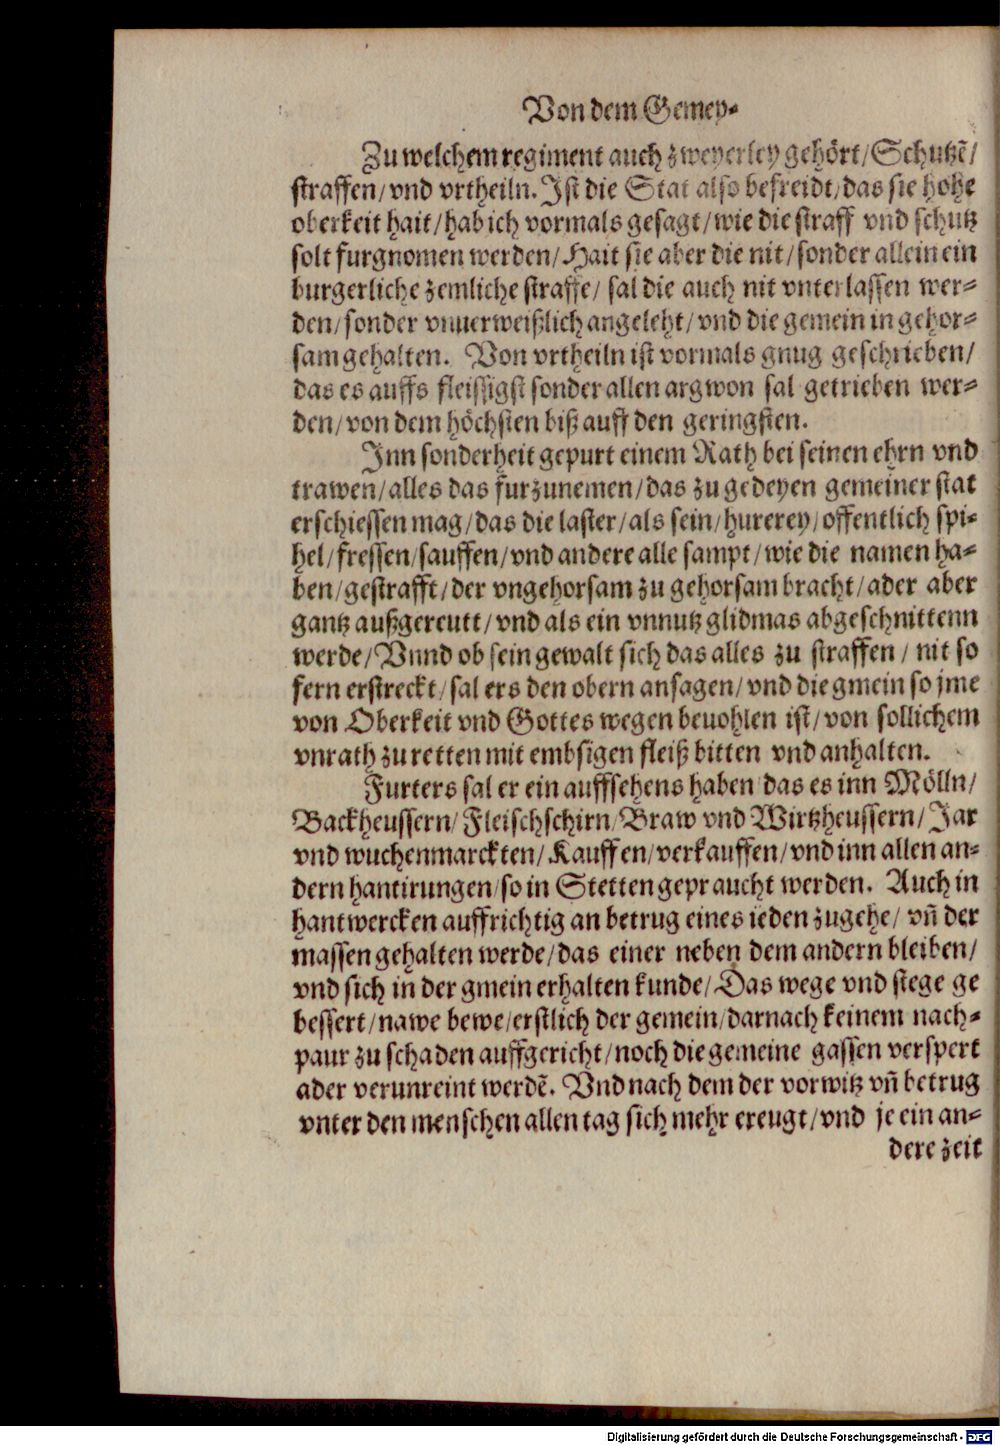 Von dem Gemey⸗
Zu welchem regiment auch zweyerley gehört/Schutzē/
straffen/vnd vrtheiln. Ist die Stat also befreidt/das sie hohe
oberkeit hait/hab ich vormals gesagt/wie die straff vnd schutz
solt furgnomen werden/Hait sie aber die nit/sonder allein ein
burgerliche zemliche straffe/ sal die auch nit vnterlassen wer⸗
den/sonder vnuerweißlich angeleht/vnd die gemein in gehor⸗
sam gehalten. Von vrtheiln ist vormals gnug geschrieben/
das es auffs fleissigst sonder allen argwon sal getrieben wer⸗
den/von dem höchsten biß auff den geringsten.
Inn sonderheit gepurt einem Rath bei seinen ehrn vnd
trawen/alles das furzunemen/das zu gedeyen gemeiner stat
erschiessen mag/das die laster/als sein/hurerey/offentlich spi⸗
hel/fressen/sauffen/vnd andere alle sampt/wie die namen ha⸗
ben/gestrafft/der vngehorsam zu gehorsam bracht/ader aber
gantz außgereutt/vnd als ein vnnutz glidmas abgeschnittenn
werde/Vnnd ob sein gewalt sich das alles zu straffen/ nit so
fern erstreckt/sal ers den obern ansagen/vnd die gmein so jme
von Oberkeit vnd Gottes wegen beuohlen ist/von sollichem
vnrath zu retten mit embsigen fleiß bitten vnd anhalten.
Furters sal er ein auffsehens haben das es inn Mölln/
Backheussern/Fleischschirn/Braw vnd Wirtzheussern/Jar
vnd wuchenmarckten/Kauffen/verkauffen/vnd inn allen an⸗
dern hantirungen/so in Stetten gepraucht werden. Auch in
hantwercken auffrichtig an betrug eines ieden zugehe/ vñ der
massen gehalten werde/das einer neben dem andern bleiben/
vnd sich in der gmein erhalten kunde/Das wege vnd stege ge
bessert/nawe bewe/erstlich der gemein/darnach keinem nach⸗
paur zu schaden auffgericht/noch die gemeine gassen verspert
ader verunreint werdē. Vnd nach dem der vorwitz vñ betrug
vnter den menschen allen tag sich mehr ereugt/vnd je ein an⸗
dere zeit
Digitalisierung gefördert durch die Deutsche Forschungsgemeinschaft - DFG